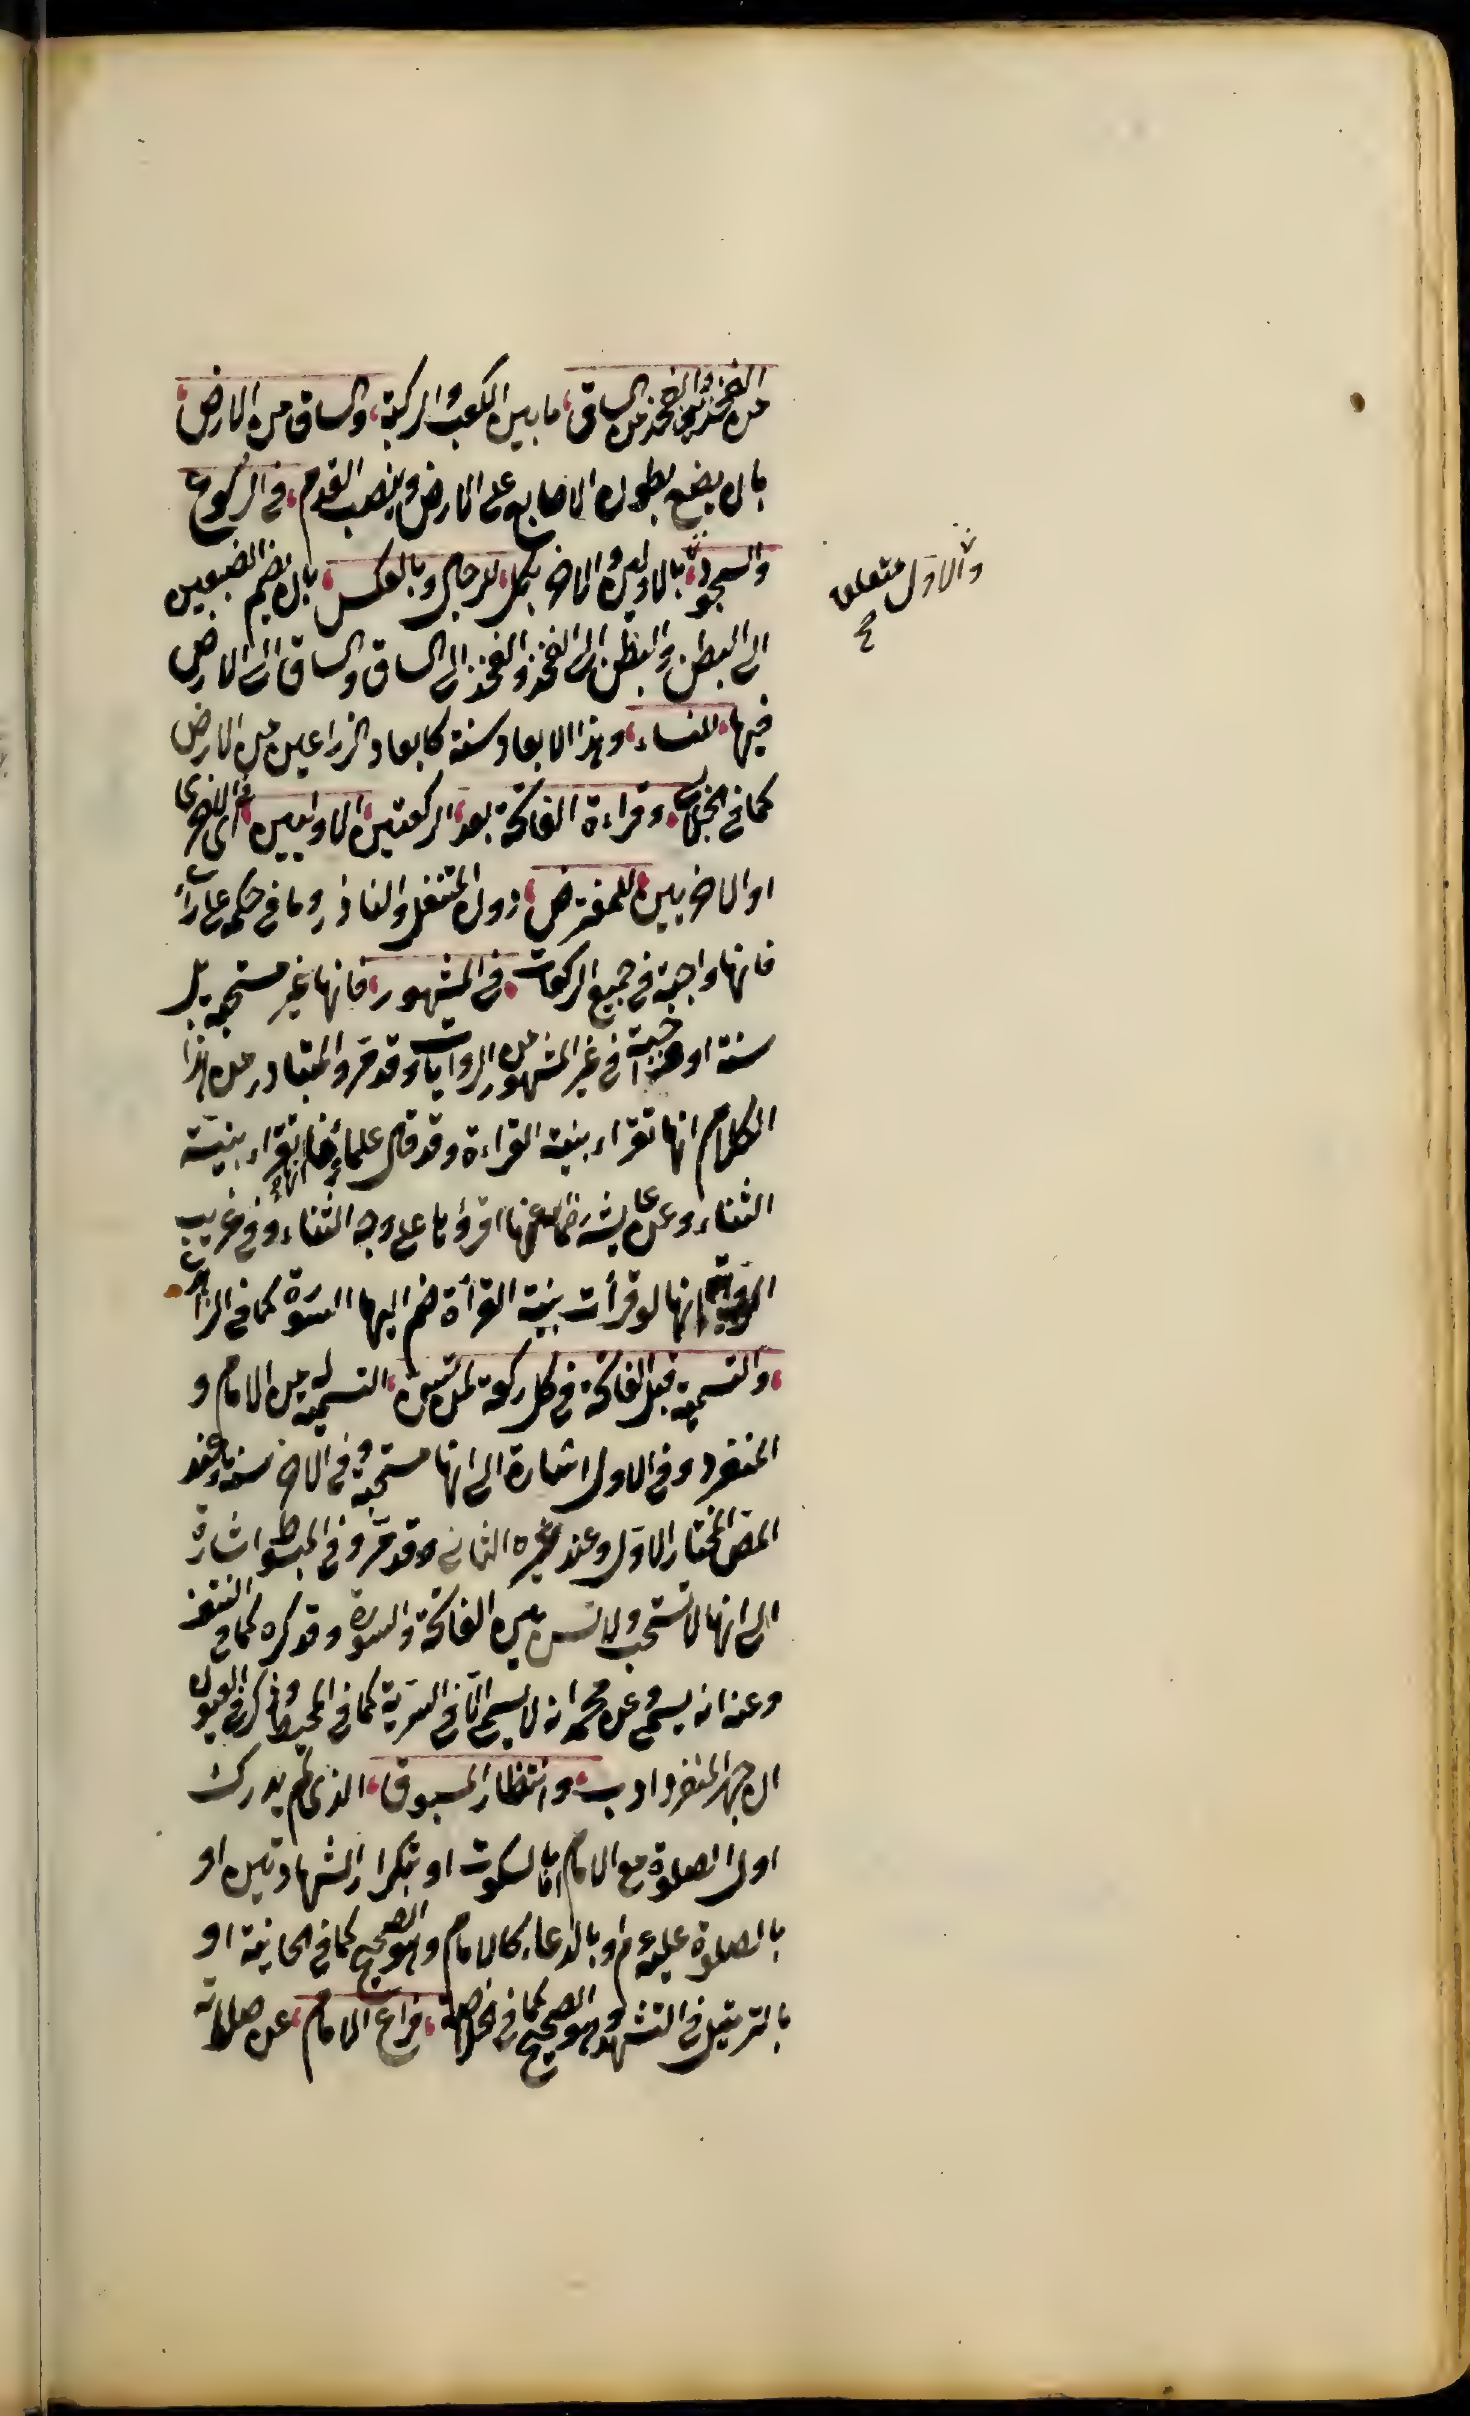 من الفخذين والفخذ من الساق ما بين الكعب والركبة والساق من الارض
بان يضع بطون الاصابع على الارض وينصب القدم في الركوع
والسجود بالاولين والاخر بكل للرجال وبالعكس بان يضم الضبعين
الى البطن والبطن الى الفخذ والفخذ الى الساق والساق الى الارض
فيها للنساء وهذا الابعاد سنة كابعاد الذراعين من الارض
كما في الجلابي وقراءة الفاتحة بعد الركعتين الاوليين في الاخرى
او الاخريين للمفترض دون المتنفل والناذر وما في حكمه
فانها واجبة في جميع الركعات في المشهور فانها غير مستحبة بل
سنة او واجبة في غير المشهور من الروايات وقد مر والمتبادر من هذا
الكلام انها تقراء بنية القراءة وقد قال علماؤنا انها تقراء بنية
الثناء وعن عايشة رضي الله عنها اقرؤها على وجه الثناء وفي غريب
الرواية انها لو قرأت بنية القرأة ضم اليها السورة كما في الزاهدي
والتسمية قبل الفاتحة في كل ركعة لمن تسن التسمية له من الامام و
المنفرد وفي الاول اشارة الى انها مستحبة وفي الاخر سنة وعند
المص المختار الاول وعند غيره الثاني وقد مر وفي المبسوط اشارة
الى انها لا تستحب ولا تسن بين الفاتحة والسورة وقد كره كما في النتف
وعنه انه يسمي وعن محمد انه لا يسمي الا في السرية كما في المحيط وذكر في العيون
ان جهر المنفرد ادب وانتظار المسبوق الذي لم يدرك
اول الصلوة مع الامام اما بالسكوت او بتكرار الشهادتين او
بالصلوة عليه م او بالدعاء كالامام وهو الصحيح كما في الخانية او
بالترتيل في التشهد وهو الصحيح كما في الخلاصة فراغ الامام عن صلاته
والاول متعلق